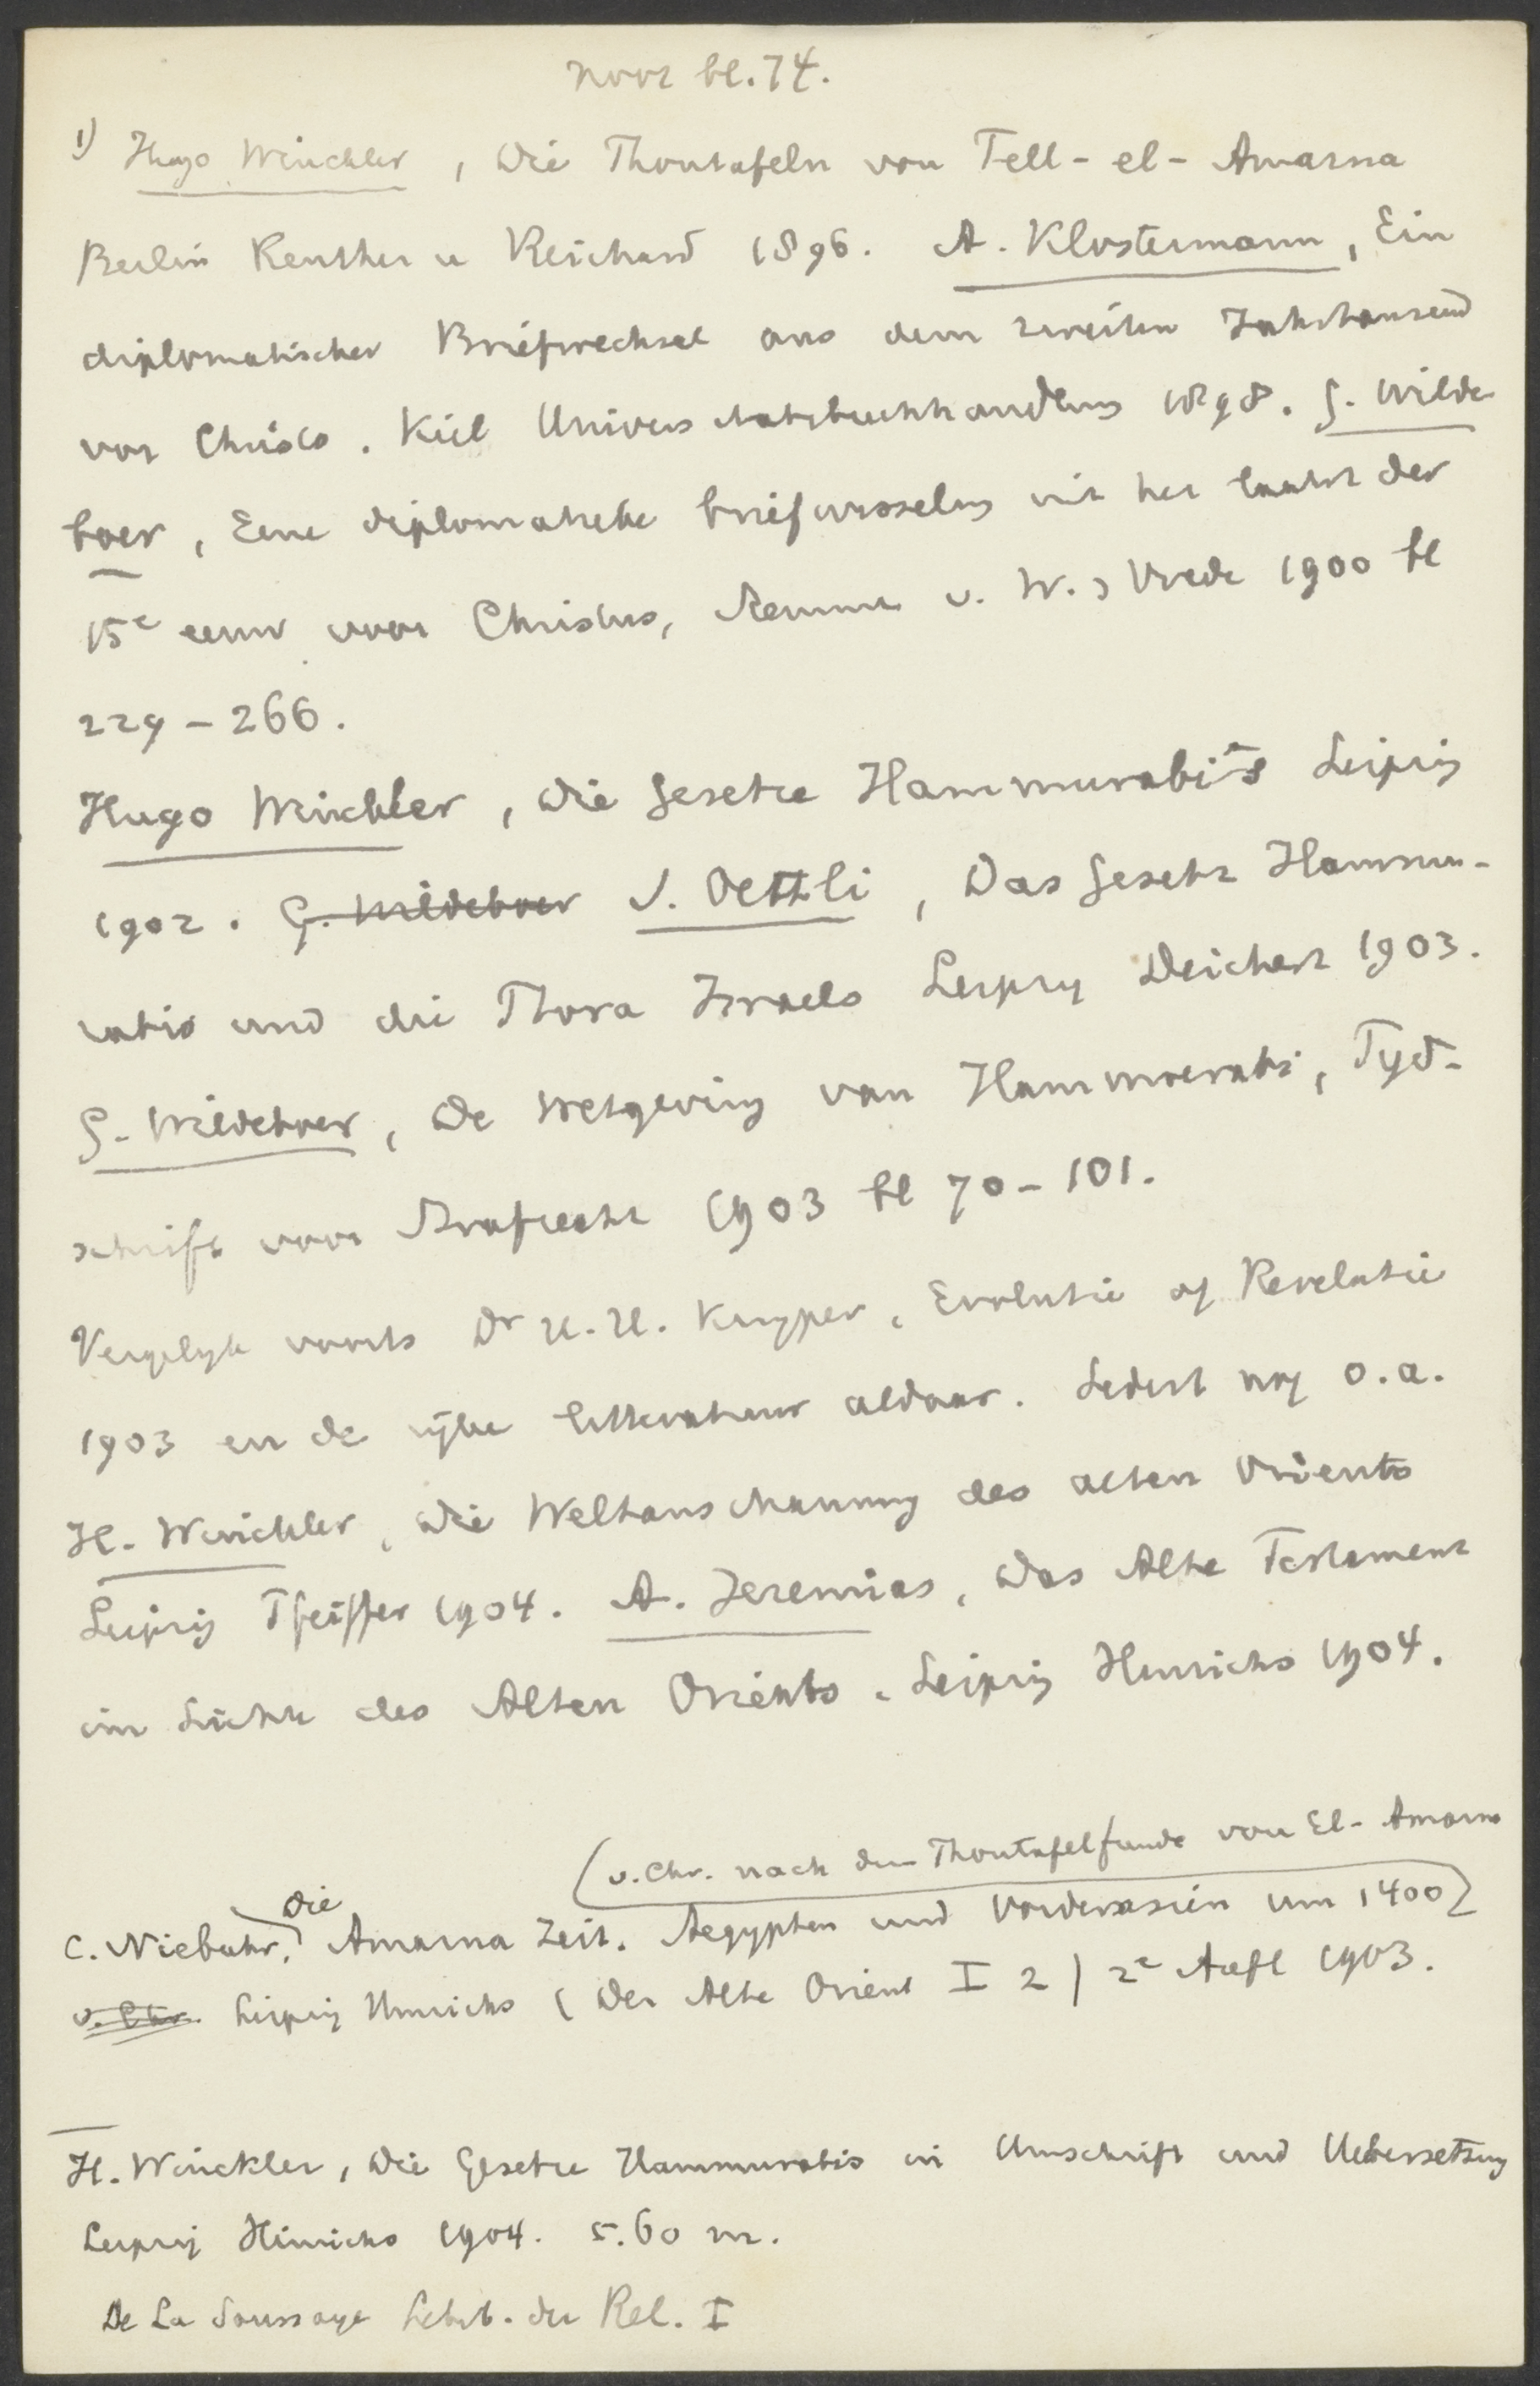 voor bl. 74.
1) Hugo Winckler, Die Thontafeln von Tell-el-Amarna
Berlin Reuther u Reichard 1896. A. Klostermann, Ein
diplomatischer Briefwechsel aus dem zweiten Jahrtausend
vor Christo. Kiel Universitatsbuchhandlung 1898. G. Wilde
boer, Eene diplomatieke briefwisseling uit het laatst der
15e eeuw voor Christus, Stemmen v. W. & Vrede 1900 bl
229-266.
Hugo Winckler, Die Gesetze Hammurabis Leipzig
1902. G. Wildeboer S. Oettli, Das Gesetz Hammu-
rabis und die Thora Israels Leipzig Deichert 1903.
G. Wildeboer, De Wetgeving van Hammoerabi, Tijd-
schrift voor Strafrecht 1903 bl 70-101.
Vergelijk voorts Dr H. H. Kuyper, Evolutie of Revelatie
1903 en de rijke litteratuur aldaar. Sedert nog o.a.
H. Winckler, Die Weltanschauung des alten Orients
Leipzig Pfeiffer 1904. A. Jeremias, Das Alte Testament
im Lichte des Alten Orients. Leipzig Hinrichs 1904.
(v. Chr. nach dem Thontafelfunde von El-Amarna
Die
C. Niebuhr, Amarna Zeit. Aegypten und Vorderasien um 1400
v. Chr. Leipzig Hinrichs (Der Alte Orient I 2) 2e Aufl 1903.
H. Winckler, Die Gesetze Hammurabis in Umschrift und Uebersetzung
Leipzig Hinrichs 1904. 5.60 m.
De La Saussaye Lehrb. der Rel. I